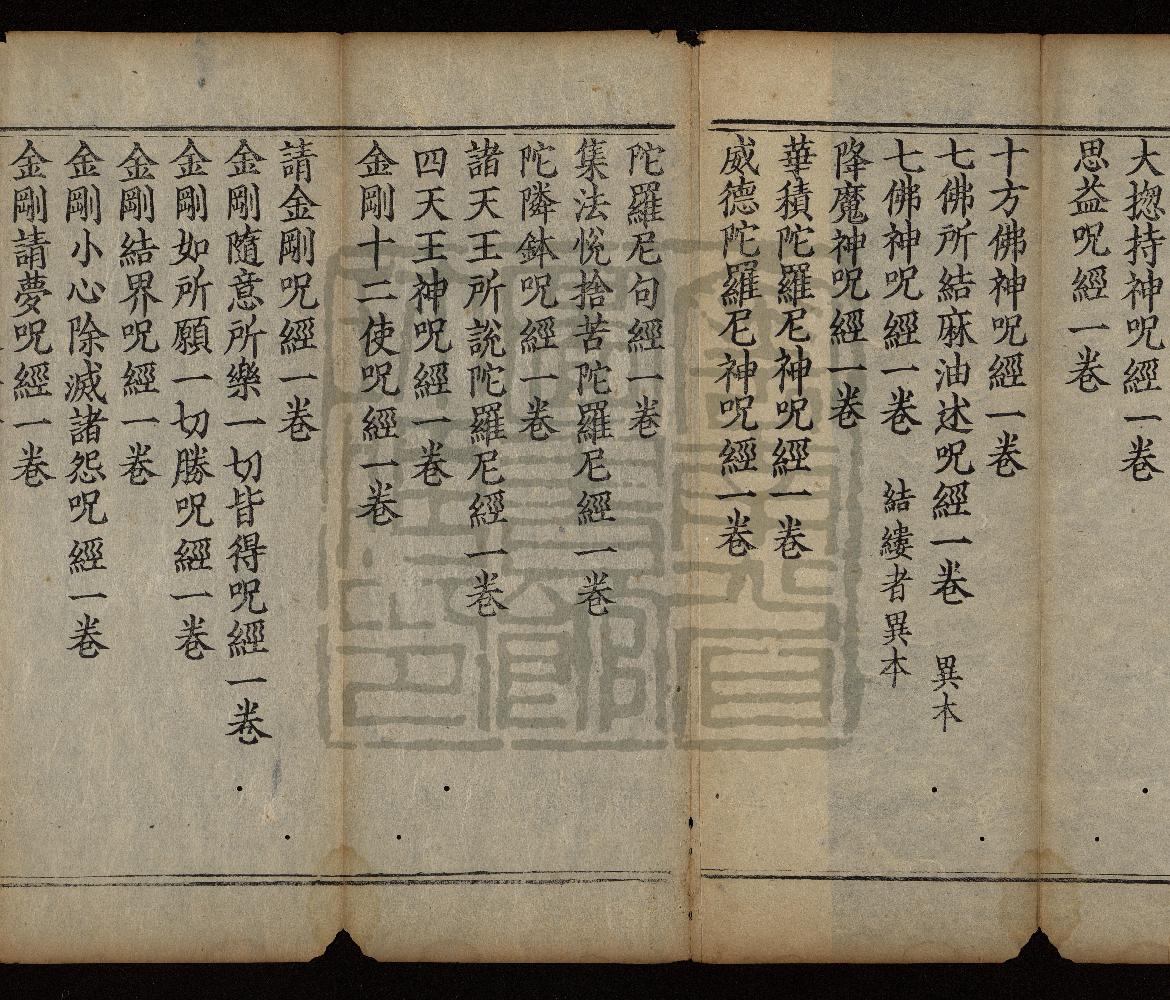 大揔持神呪經一卷
思益呪經一卷
十方佛神呪經一卷
七佛所結麻油述呪經一卷 異本
七佛神呪經一卷 結縷者異本
降魔神呪經一卷
華積陀羅尼神呪經一卷
威德陀羅尼神呪經一卷
陀羅尼句經一卷
集法悅捨苦陀羅尼經一卷
陀隣鉢呪經一卷
諸天王所說陀羅尼經一卷
四天王神呪經一卷
金剛十二使呪經一卷
請金剛呪經一卷
金剛隨意所樂一切皆得呪經一卷
金剛如所願一切勝呪經一卷
金剛結界呪經一卷
金剛小心除滅諸怨呪經一卷
金剛請夢呪經一卷